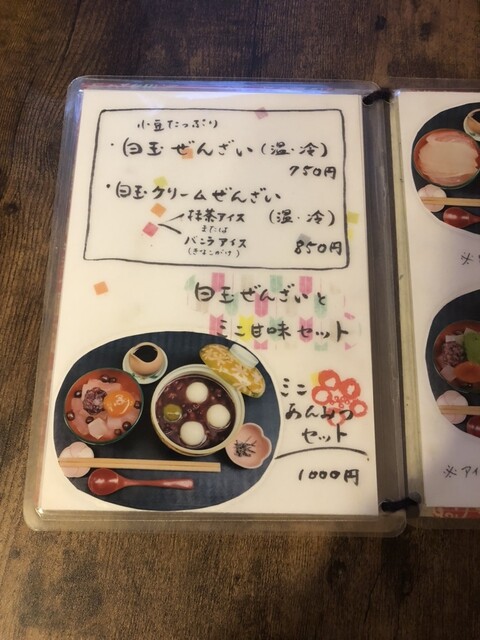 小豆たっぷり
・白玉ぜんざい(温・冷)
750円
・白玉クリームぜんざい
抹茶アイス (温・冷)
または
バニラアイス 850円
(きなこがけ)
白玉ぜんざいと
ミニ甘味セット
ミニ
あんみつ
セット
1000円
※
※アイ